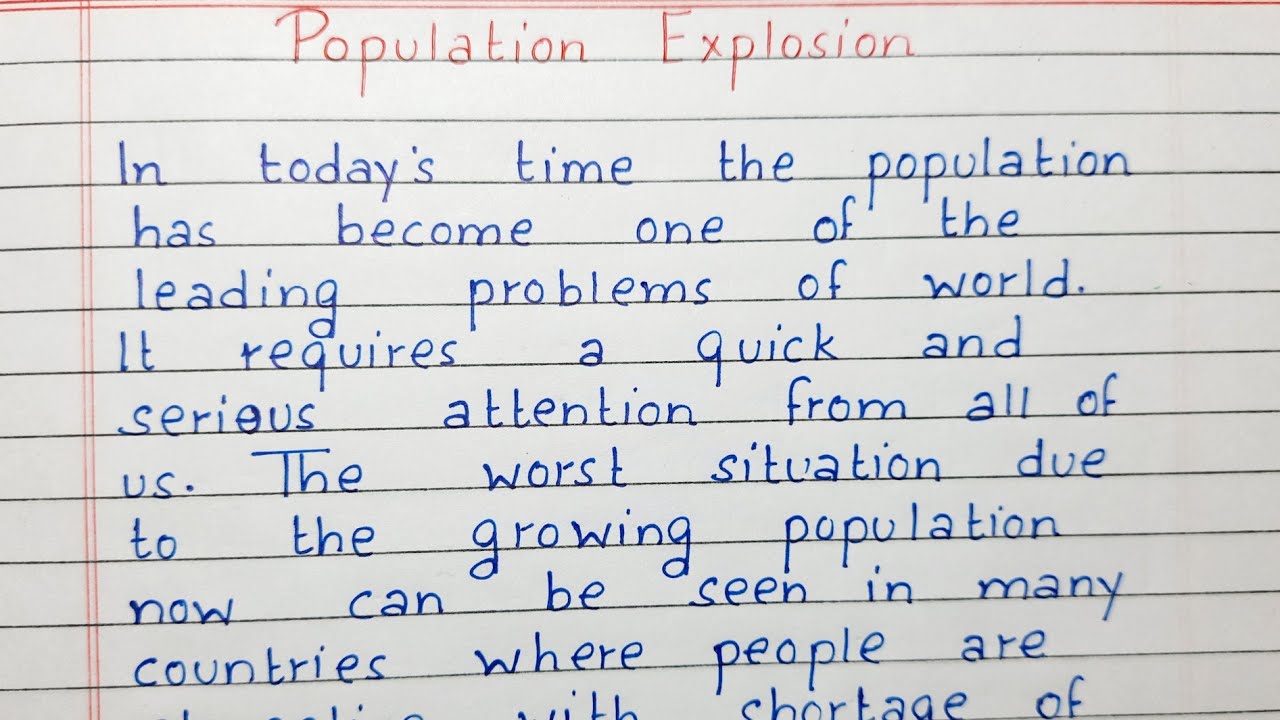 Population Explosion
In today's time the population
has become one of the
leading problems of world.
It requires a quick and
serious attention from all of
us. The worst situation due
to the growing population
now can be seen in many
countries where people are
with shortage of